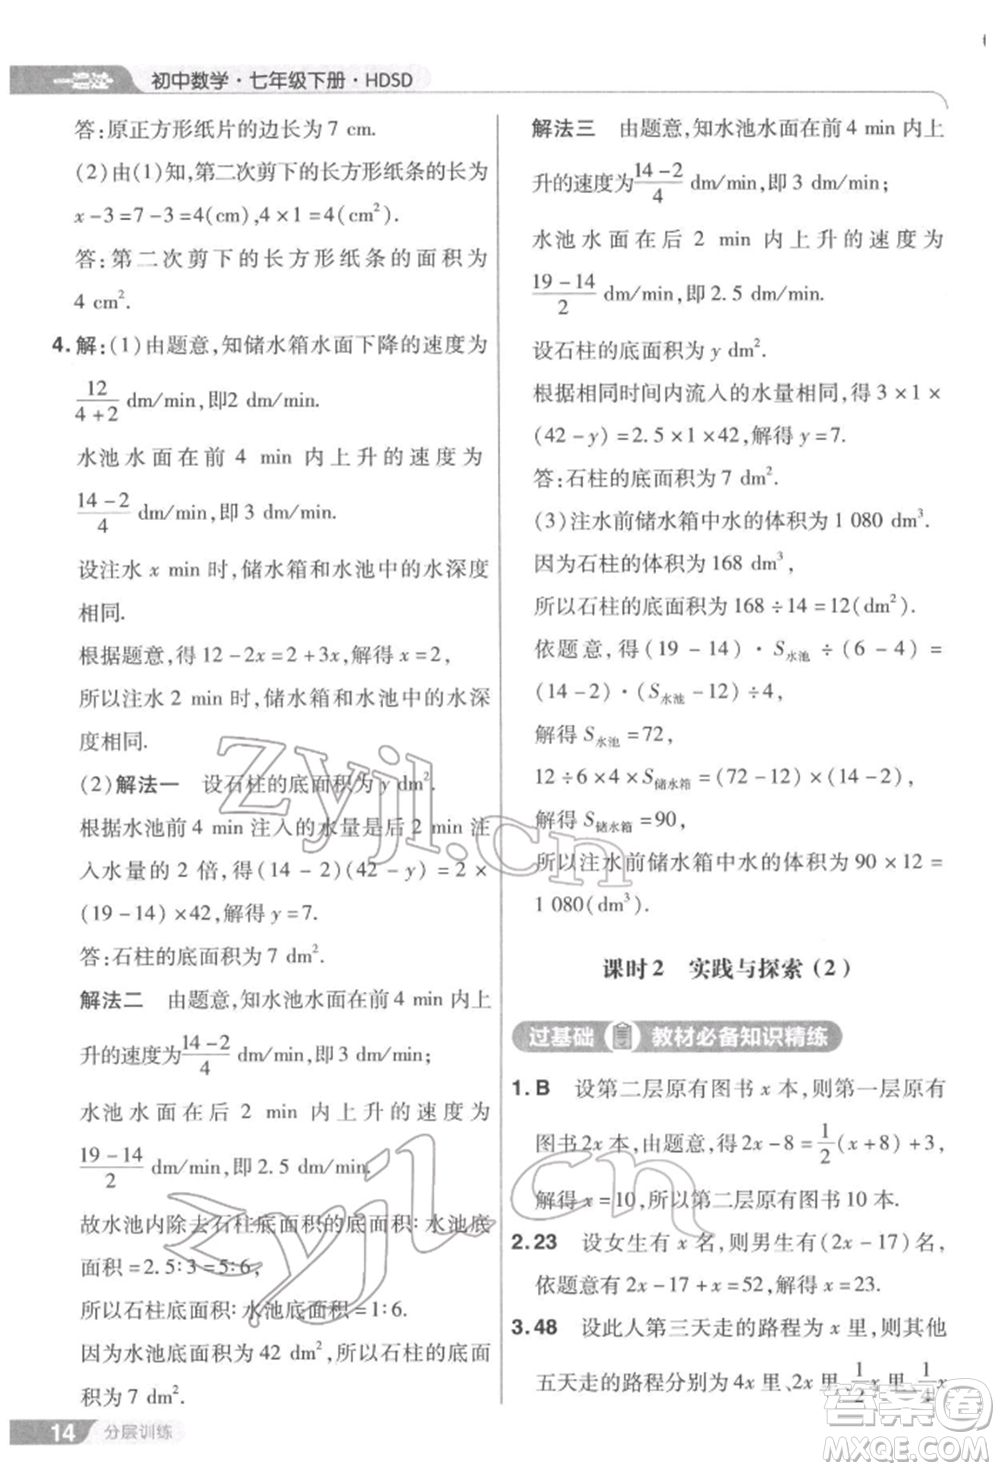 一遍过 初中数学·七年级下册·HDSD
答:原正方形纸片的边长为7 cm.
(2)由(1)知,第二次剪下的长方形纸条的长为
x-3=7-3=4(cm),4×1=4(cm²).
答:第二次剪下的长方形纸条的面积为
4 cm².
4.解:(1)由题意,知储水箱水面下降的速度为
12/(4+2) dm/min,即2 dm/min.
水池水面在前 4 min 内上升的速度为
(14-2)/4 dm/min,即3 dm/min.
设注水 x min时,储水箱和水池中的水深度
相同.
根据题意,得12-2x=2+3x,解得x=2,
所以注水2 min时,储水箱和水池中的水深
度相同.
(2)解法一 设石柱的底面积为y dm².
根据水池前4 min注入的水量是后2 min注
入水量的2倍,得(14-2)(42-y)=2×
(19-14)×42,解得y=7.
答:石柱的底面积为7 dm².
解法二 由题意,知水池水面在前4 min内上
升的速度为(14-2)/4 dm/min,即3 dm/min;
水池水面在后 2 min 内上升的速度为
(19-14)/2 dm/min,即2.5 dm/min.
故水池内除去石柱底面积的面积:水池底
面积=2.5:3=5:6,
所以石柱底面积:水池底面积=1:6.
因为水池底面积为42 dm²,所以石柱的底面
积为7 dm².
14 分层训练
解法三 由题意,知水池水面在前4 min内上
升的速度为(14-2)/4 dm/min,即3 dm/min;
水池水面在后 2 min 内上升的速度为
(19-14)/2 dm/min,即2.5 dm/min.
设石柱的底面积为y dm².
根据相同时间内流入的水量相同,得3×1×
(42-y)=2.5×1×42,解得y=7.
答:石柱的底面积为7 dm².
(3)注水前储水箱中水的体积为1 080 dm³.
因为石柱的体积为168 dm³,
所以石柱的底面积为168÷14=12(dm²).
依题意,得(19-14)·S水池÷(6-4)=
(14-2)·(S水池-12)÷4,
解得S水池=72,
12÷6×4×S储水箱=(72-12)×(14-2),
解得S储水箱=90,
所以注水前储水箱中水的体积为90×12=
1 080(dm³).
课时2 实践与探索(2)
过基础 教材必备知识精练
1.B 设第二层原有图书x本,则第一层原有
图书2x本,由题意,得2x-8=1/2(x+8)+3,
解得x=10,所以第二层原有图书10本.
2.23 设女生有x名,则男生有(2x-17)名,
依题意有2x-17+x=52,解得x=23.
3.48 设此人第三天走的路程为x里,则其他
五天走的路程分别为4x里、2x里、1/2x里、1/4x
zyjl.cn
zyjl.cn
答案圈
MXQE.COM